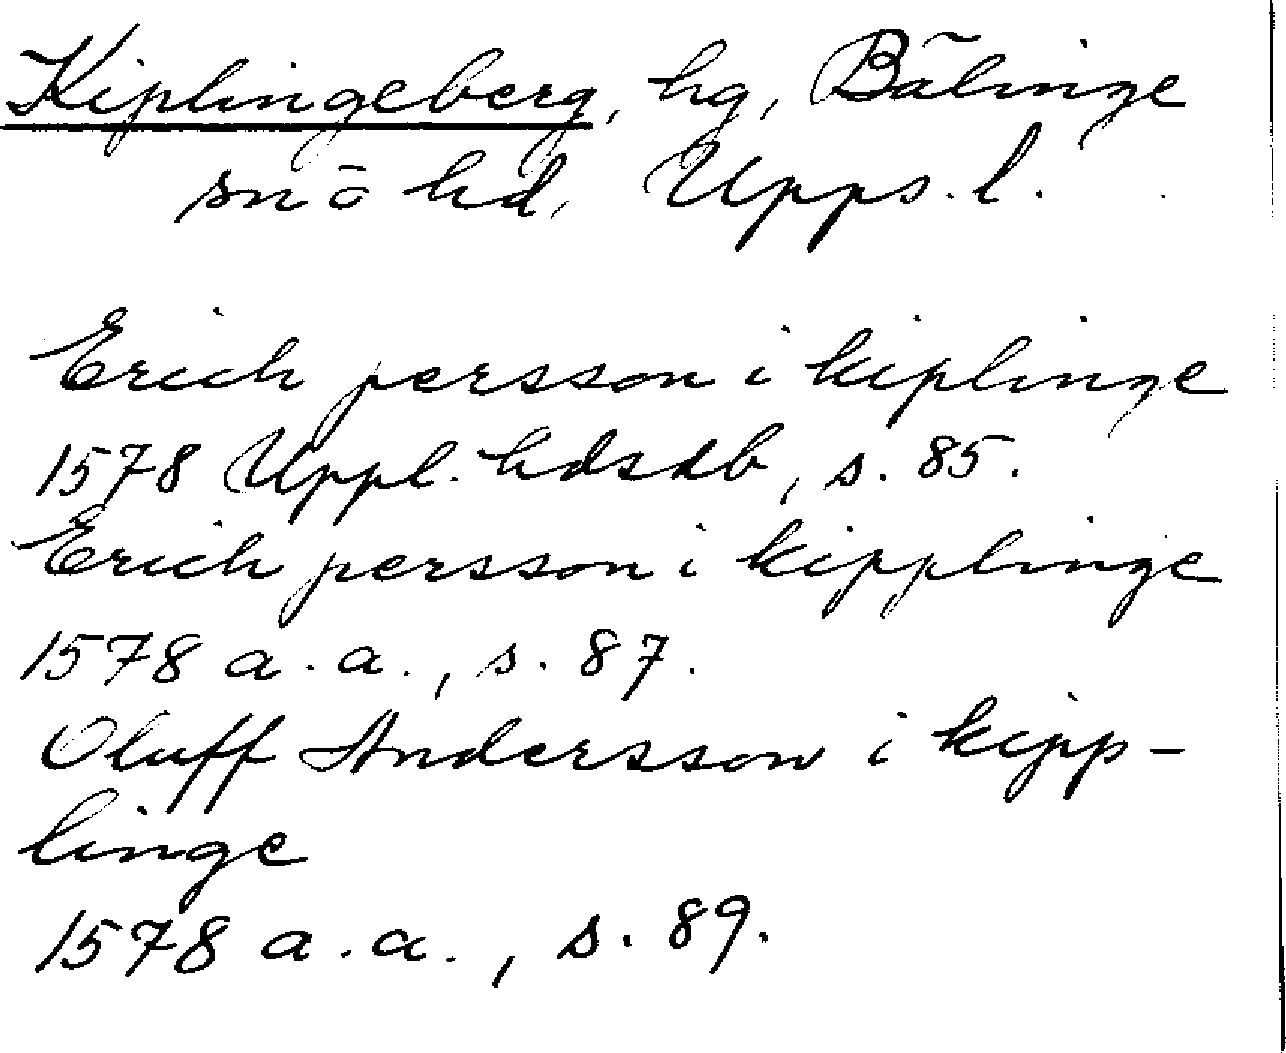 Kiplingeberg, hg, Bälinge
sn o hd, Upps. l.
Erich persson i kiplinge
1578 Uppl. hdsdb, s. 85.
Erich persson i kipplinge
1578 a.a., s. 87.
Oluff Andersson i kipp-
linge
1578 a.a., s. 89.